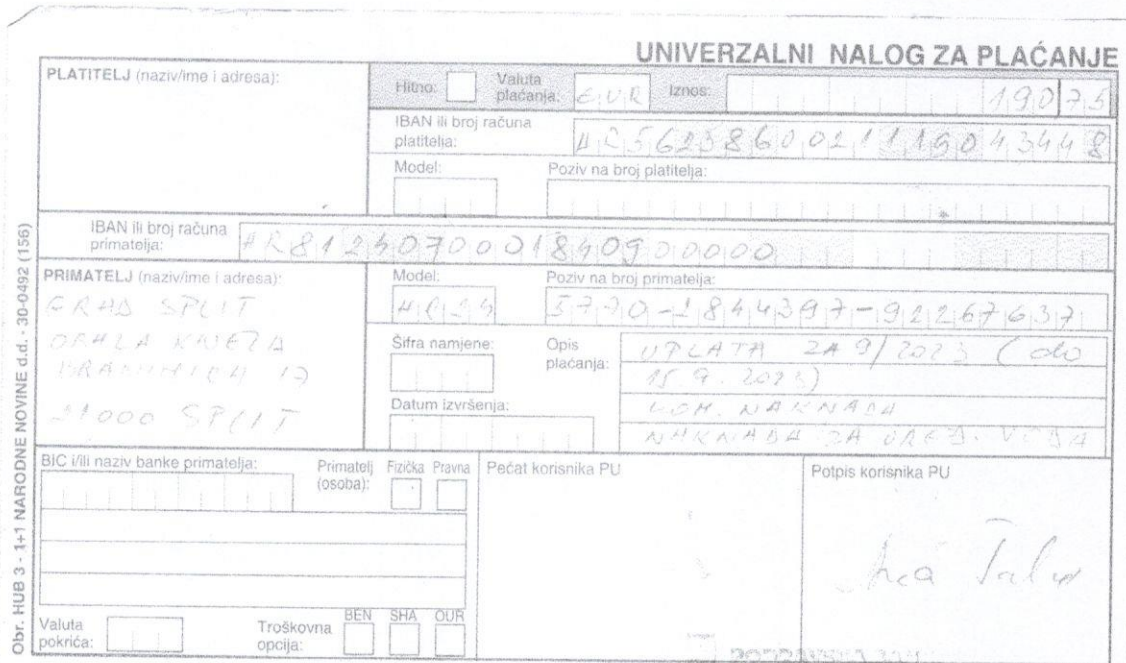 UNIVERZALNI NALOG ZA PLAĆANJE
PLATITELJ (naziv/ime i adresa):
Hitno:
Valuta plaćanja: EUR
Iznos: 190 75
IBAN ili broj računa platitelja: HR5623860021119043448
Model:
Poziv na broj platitelja:
IBAN ili broj računa primatelja: HR8124070001840900000
PRIMATELJ (naziv/ime i adresa):
GRAD SPLIT
OBALA KNEZA
BRANIMIRA 17
21000 SPLIT
Model: HR24
Poziv na broj primatelja: 5770-1844397-92267637
Šifra namjene:
Opis plaćanja: UPLATA ZA 9/2023 (do
15.9.2023)
KOM. NAKNADA
NAKNADA ZA UREĐ. VODA
Datum izvršenja:
BIC i/ili naziv banke primatelja:
Primatelj (osoba): Fizička Pravna
Pečat korisnika PU
Potpis korisnika PU
Valuta pokrića:
Troškovna opcija: BEN SHA OUR
Obr. HUB 3 - 1+1 NARODNE NOVINE d.d. - 30-0492 (156)